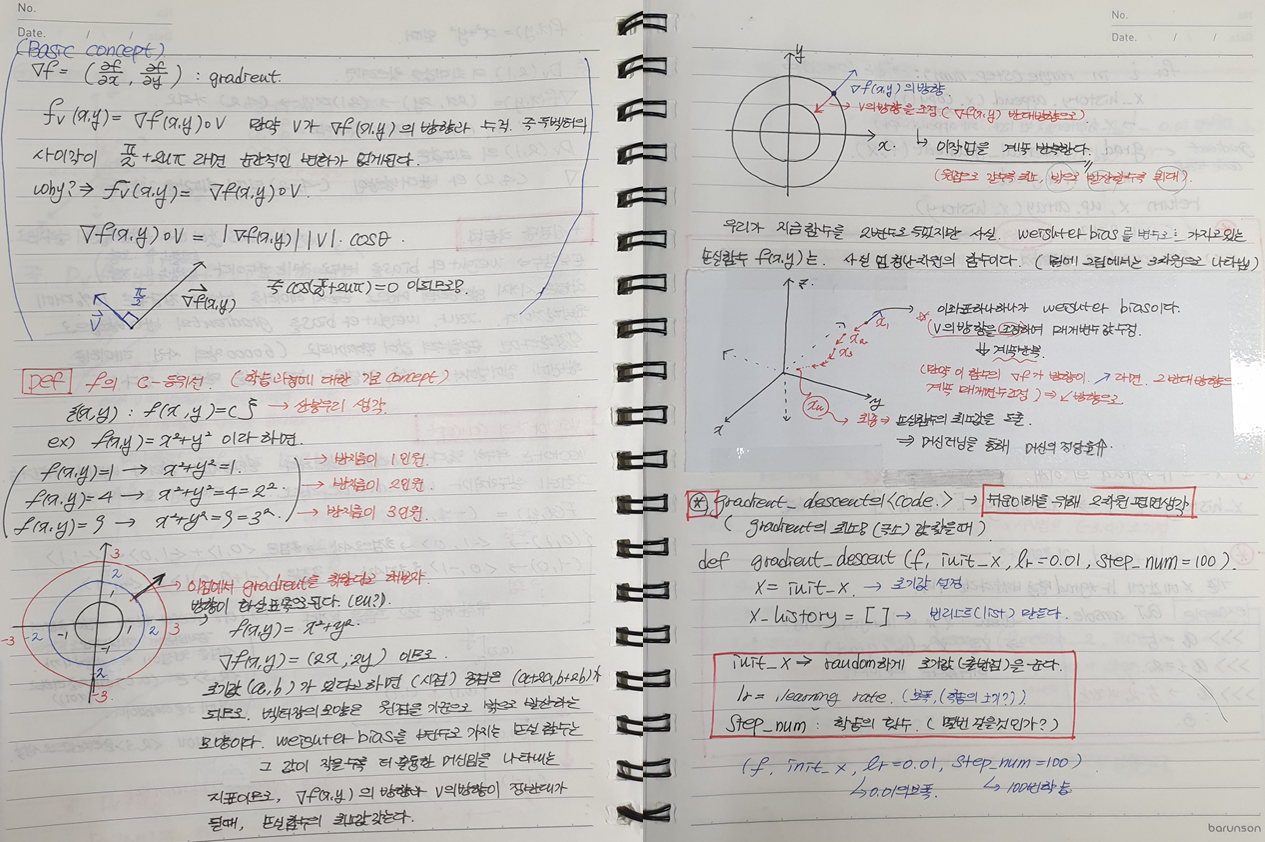 No.
Date. / /
(Basic concept)
∇f = (∂f/∂x, ∂f/∂y) : gradient.
f_v(x,y) = ∇f(x,y)∘V 만약 V가 ∇f(x,y)의 방향과 수직. 즉 두벡터의
사이각이 π/2+2nπ 라면 순간적인 변화가 없게된다.
why? ⇒ f_v(x,y) = ∇f(x,y)∘V.
∇f(x,y)∘V = |∇f(x,y)||V|·cosθ.
즉 cos(π/2+2nπ)=0 이므로!
π/2
V
∇f(x,y)
def f의 C-등위선. (학습과정에 대한 기초concept)
{(x,y) : f(x,y)=c} → 산봉우리 생각.
ex) f(x,y)=x²+y² 이라 하면.
f(x,y)=1 → x²+y²=1. → 반지름이 1인원.
f(x,y)=4 → x²+y²=4=2². → 반지름이 2인원.
f(x,y)=9 → x²+y²=9=3². → 반지름이 3인원.
3
2
1
-3 -2 -1 1 2 3
-1
2
-3
→ 이점에서 gradient를 취한다고 해보자.
방향이 화살표쪽이된다. (eu?)
f(x,y)=x²+y².
∇f(x,y)=(2x,2y) 이므로.
초기값 (a,b)가 있다고하면 (시점) 종점은 (a+2a,b+2b)가
되므로. 벡터장의 모양은 원점을 기준으로 밖으로 발산하는
모양이다. weight와 bias를 변수로 가지는 손실 함수는
그 값이 작을수록 더 훌륭한 머신임을 나타내는
지표이므로, ∇f(x,y)의 방향과 V의방향이 정반대가
될때, 손실함수의 최소값갖는다.
No.
Date. / /
y
x.
∇f(x,y)의 방향.
→ V의방향을 조정 (∇f(x,y) 반대방향으로)
↳ 이작업을 계속 반복한다.
(원점으로 갈수록 최소, 밖으로 발산할수록 최대).
우리가 지금함수를 2변수로 두었지만 사실. weight와 bias를 변수로 가지고있는
손실함수 f(x,y)는. 사실 엄청난차원의 함수이다. (밑에 그림에서는 3차원으로 나타냄)
z.
x
y
x₁
x₂
x₃
xₙ
→ 이좌표하나하나가 weight와 bias이다.
V의방향을 조정하여 매개변수값수정.
⇓ 계속반복.
(만약 이 함수의 ∇f가 방향이. ↗ 라면. 그 반대방향으로
계속 매개변수조정) ⇒ ↙ 방향으로
→ 최종 → 손실함수의 최소값을 도출.
⇒ 머신러닝을 통해 머신의 정답률↑.
* gradient_descent의<code.> → 쉬운이해를 위해 2차원 평면생각
( gradient의 최소량(극소) 값 찾을때 )
def gradient_descent (f, init_x, lr=0.01, step_num=100).
x = init_x. → 초기값 설정
x_history = [ ] → 빈리스트(list) 만든다.
init_x ⇒ random하게 초기값(출발점)을 준다.
lr = learning rate. (보폭, (학습의 크기?)).
step_num : 학습의 횟수. (몇번 걸을것인가?)
(f, init_x, lr=0.01, step_num=100)
↳ 0.01의보폭. ↳ 100번학습
barunson